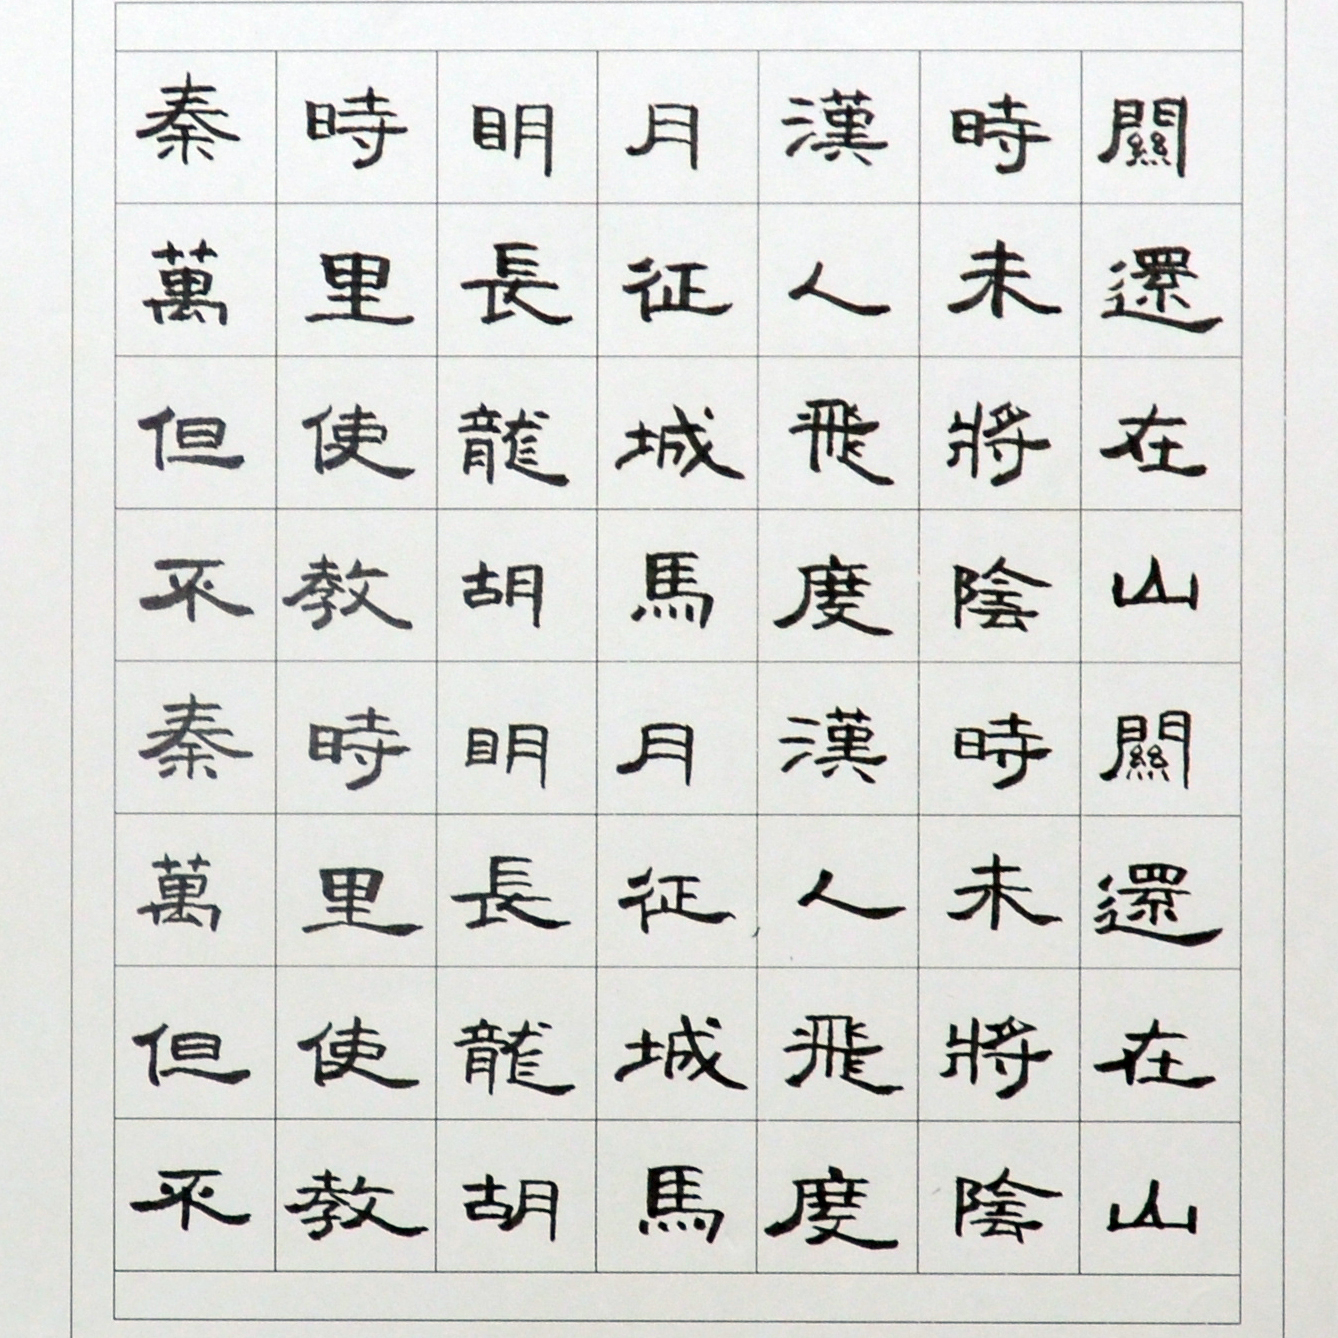 秦時明月漢時關
萬里長征人未還
但使龍城飛將在
不教胡馬度陰山
秦時明月漢時關
萬里長征人未還
但使龍城飛將在
不教胡馬度陰山